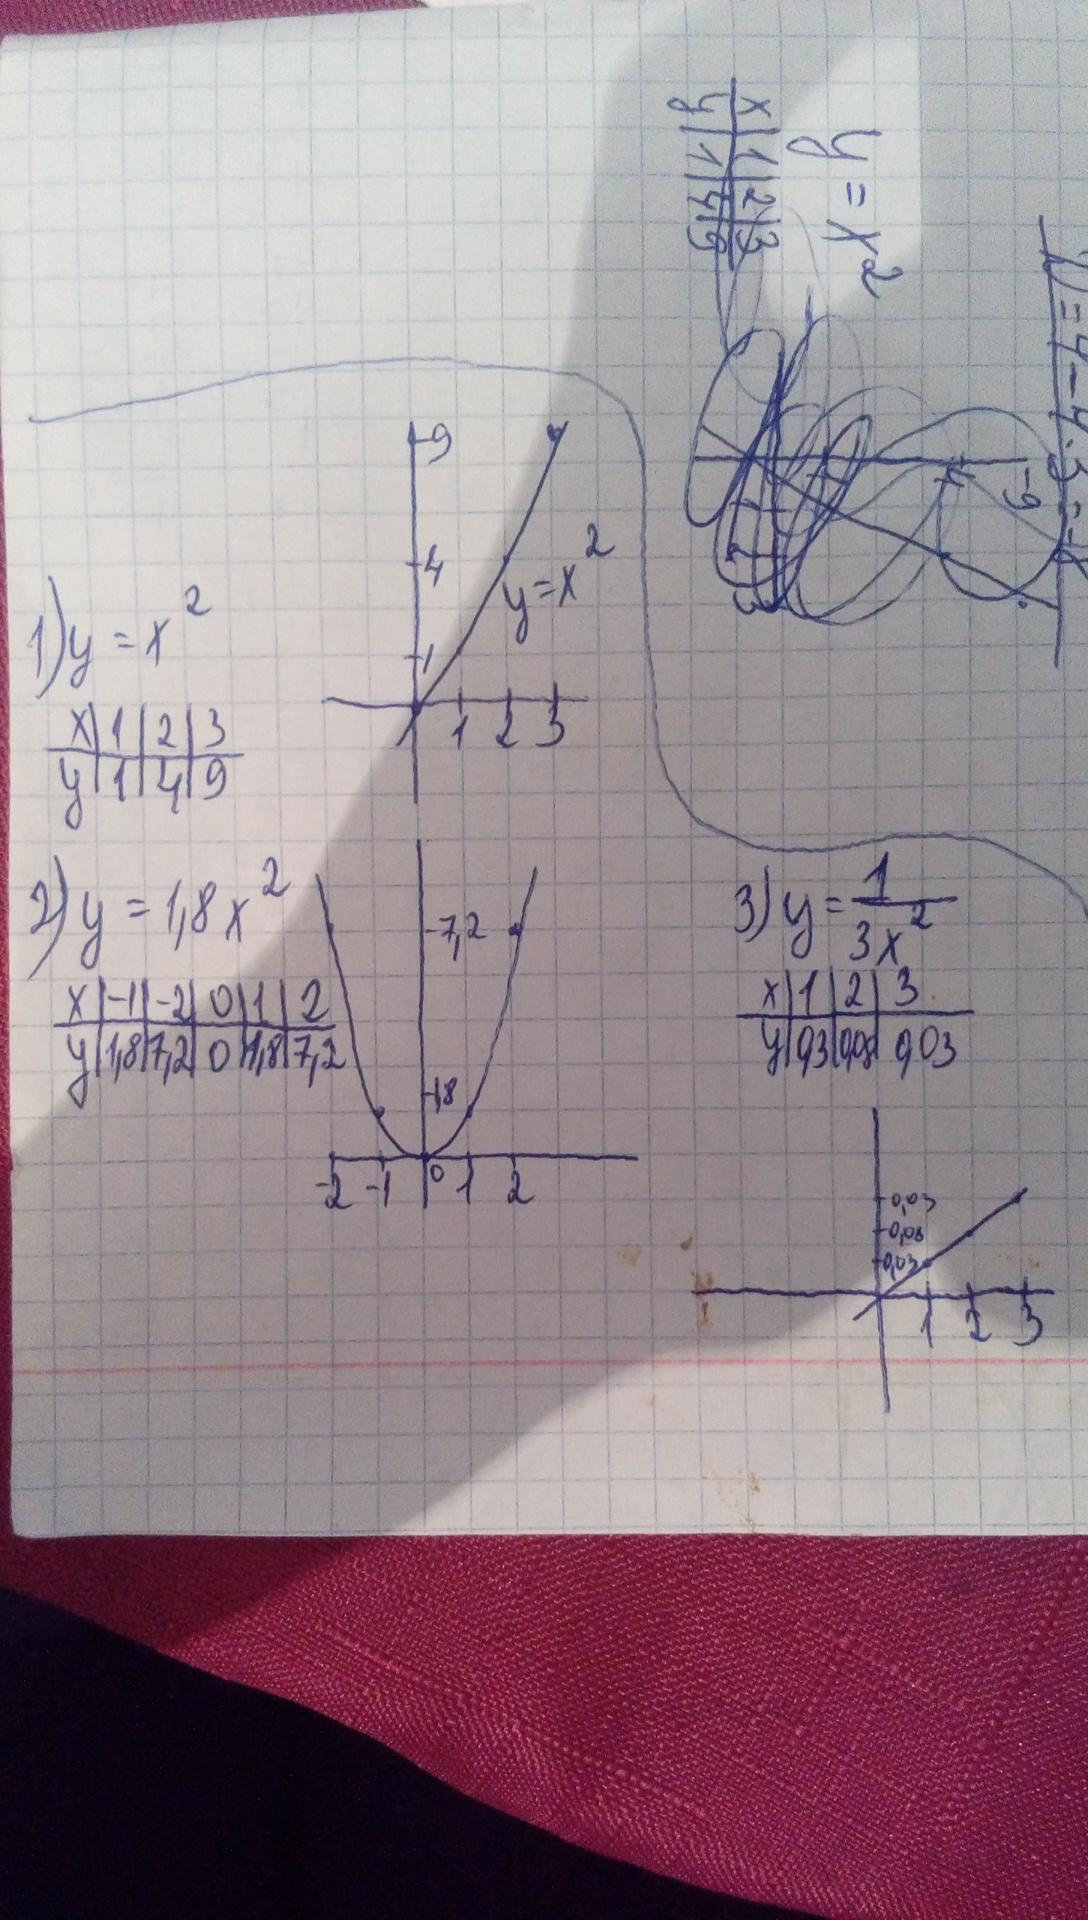 y = x²
x | 1 | 2 | 3
y | 1 | 4 | 9
-9
9
4
1
1 2 3
y=x²
1) y = x²
x | 1 | 2 | 3
y | 1 | 4 | 9
2) y = 1,8x²
x | -1 | -2 | 0 | 1 | 2
y | 1,8 | 7,2 | 0 | 1,8 | 7,2
-7,2
1,8
-2 -1 0 1 2
3) y = 1/3x²
x | 1 | 2 | 3
y | 0,3 | 0,08 | 0,03
0,03
0,08
0,03
1 2 3